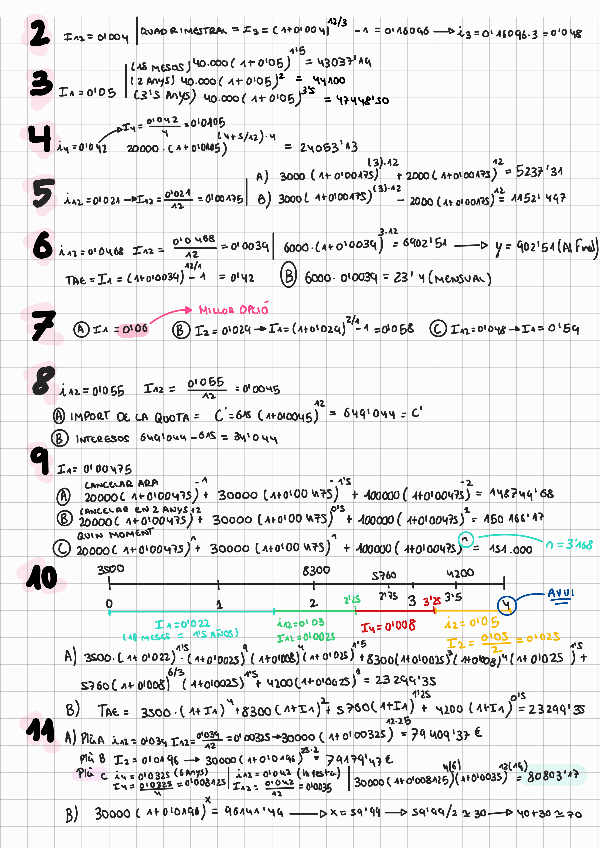 2 I12=0'004 | QUADRIMESTRAL = I3 = (1+0'004)^12/3 -1 = 0'16096 → i3=0'16096·3=0'048
3 I1=0'05 | (18 MESOS) 40.000(1+0'05)^1'5 = 43037'19
(2 ANYS) 40.000(1+0'05)^2 = 44100
(3'5 ANYS) 40.000(1+0'05)^3'5 = 47448'50
4 i4=0'042 → I4=0'042/4=0'0105
20000·(1+0'0105)^(4+5/12)·4 = 24053'13
5 i12=0'021→I12=0'021/12=0'00175 | A) 3000(1+0'00175)^(3)·12 + 2000(1+0'00175)^12 = 5237'31
B) 3000(1+0'00175)^(3)·12 - 2000(1+0'00175)^12 = 1152'1497
6 i12=0'0468 I12=0'0468/12=0'0039 | 6000·(1+0'0039)^3·12=6902'51 → y=902'51(Al Final)
TAE=I1=(1+0'0039)^12/1 -1 = 0'42 B 6000·0'0039=23'4(MENSUAL)
→ MILLOR OPCIÓ
7 A I1=0'06 B I2=0'029→I1=(1+0'029)^2/1 -1=0'058 C I12=0'048→I1=0'59
8 i12=0'055 I12=0'055/12=0'0045
A IMPORT DE LA QUOTA = C'=615(1+0'0045)^12=649'044=C'
B INTERESOS 649'044-615=34'044
9 I1=0'00475
CANCELAR ARA
A 20000(1+0'00475)^-1+30000(1+0'00475)^-1'5+100000(1+0'00475)^-2=148744'68
CANCELAR EN 2 ANYS
B 20000(1+0'00475)^12+30000(1+0'00475)^0'5+100000(1+0'00475)^2=150166'17
QUIN MOMENT
C 20000(1+0'00475)^n+30000(1+0'00475)^n+100000(1+0'00475)^n=151.000 n=3'168
10 3500 8300 5760 4200
0 1 2 2'25 2'75 3 3'25 3'5 4 AVUI
I1=0'022 i12=0'03 I4=0'008 i2=0'05
(18 MESES = 1'5 AÑOS) I12=0'0025 I2=0'05/2=0'025
A) 3500·(1+0'022)^1'5·(1+0'0025)^9(1+0'008)^4(1+0'025)^1'5+8300(1+0'0025)^3(1+0'008)^4(1+0'025)^1'5+
5760(1+0'008)^6/3(1+0'0025)^1'5+4200(1+0'0625)^1=23299'35
B) TAE= 3500·(1+I1)^4+8300(1+I1)^2+5760(1+I1)^1'25+4200(1+I1)^0'5=23299'35
11 A) Pla A i12=0'039 I12=0'039/12=0'00325→30000(1+0'00325)^12·25=79409'37€
Pla B I2=0'0196→30000(1+0'0196)^25·2=79179'47€
Pla C i4=0'0325(6 ANYS) | i12=0'042(la resta) | 30000(1+0'008125)^4(6)(1+0'0035)^12(19)=80803'17
I4=0'0325/4=0'008125 | I12=0'042/12=0'0035
B) 30000(1+0'0196)^x=96141'49→x=59'99→59'99/2≃30→40+30≃70